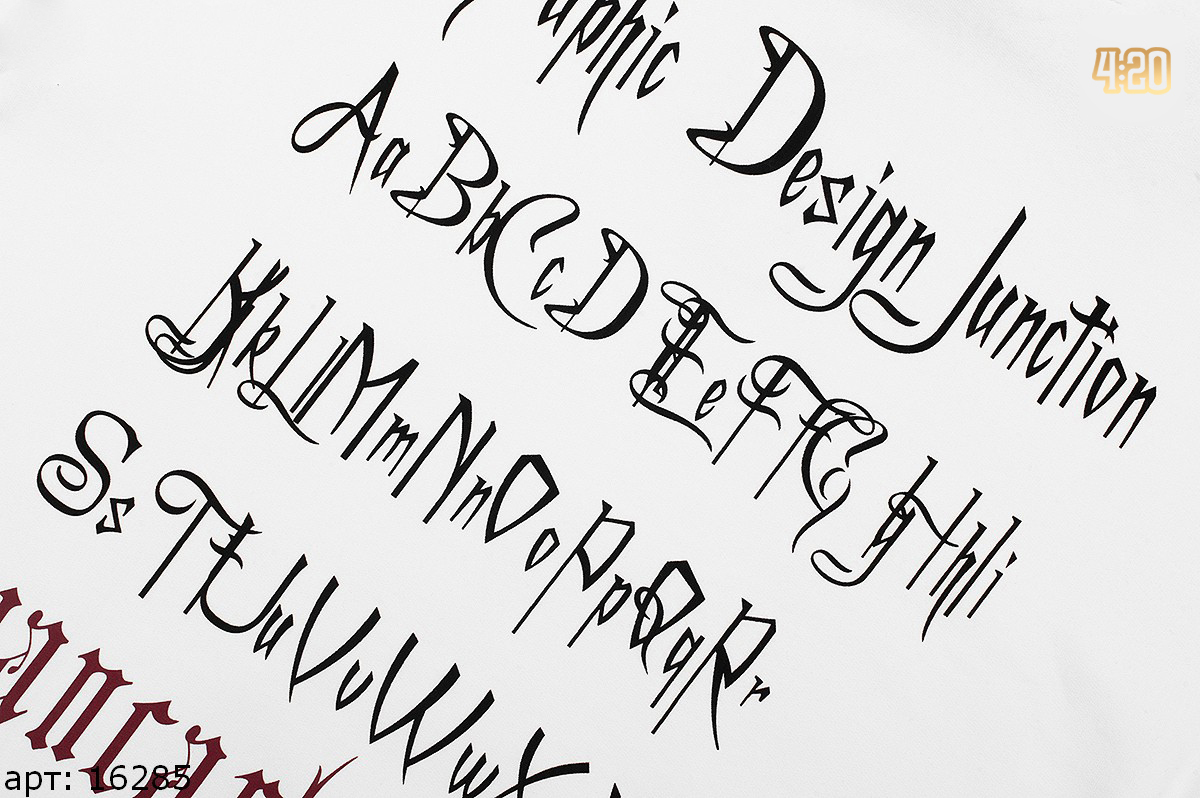 4:20
aphic Design Junction
AaBbCcDEeFfGgHhIi
KkLlMmNnOoPpQqRr
SsTtUuVvWwX
арт: 16285